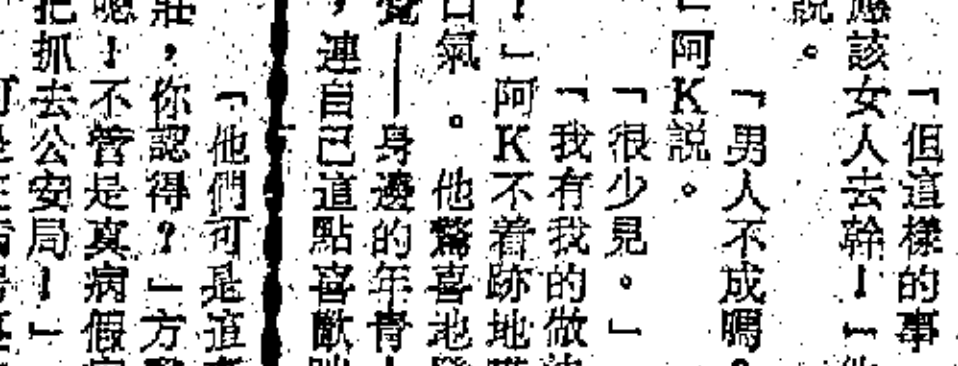 「但這樣的事
應該女人去幹！」他
説。
「男人不成嗎？
」阿K説。
「很少見。」
「我有我的做法
！」阿K不着跡地
口氣。他驚喜地發
覺——身邊的年青
，連自己這點喜歡
「他們可是道
莊，你認得？」方
嗯！不管是真病假病
把抓去公安局！」
可是在